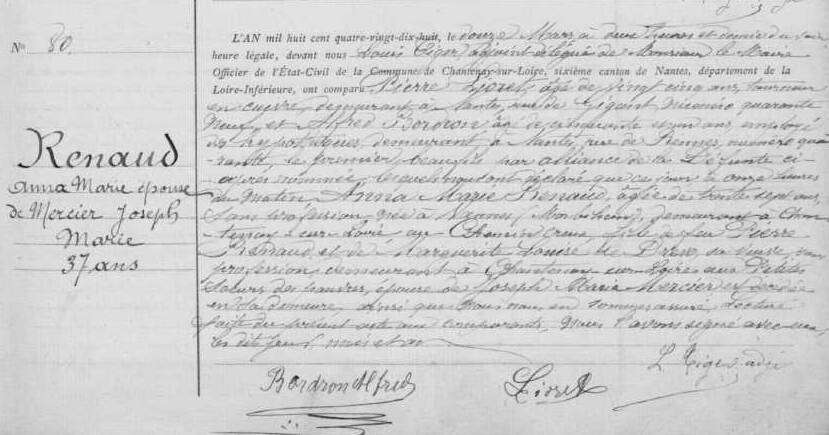 N° 80
Renaud
Anna Marie épouse
de Mercier Joseph
Marie
37 ans
L'AN mil huit cent quatre-vingt-dix-huit, le douze Mars à deux heures et demie du soir
heure légale, devant nous Louis Tiger adjoint délégué de Monsieur le Maire
Officier de l'État-Civil de la Commune de Chantenay-sur-Loire, sixième canton de Nantes, département de la
Loire-Inférieure, ont comparu Pierre Lioret, âgé de vingt cinq ans, tourneur
en cuivre, demeurant à Nantes, rue de Gigant, numéro quarante
neuf, et Alfred Bordron âgé de cinquante et un ans, employé
des hypothèques, demeurant à Nantes, rue de Rennes, numéro qua
rante, le premier, par alliance de la défunte ci-
après nommée, lesquels nous ont déclaré que ce jour à onze heures
du matin, Anna Marie Renaud, âgée de trente sept ans,
sans profession, née à Vannes, (Morbihan), demeurant à Chan
tenay sur Loire au Chemin Creux, fille de feu Pierre
Renaud, et de Marguerite Louise Le Drev, sa veuve, sans
profession demeurant à Chantenay-sur-Loire aux Petites
Sœurs des pauvres, épouse de Joseph Marie Mercier est décédée
en sa demeure, ainsi que nous nous en sommes assuré, lecture
faite du présent acte aux comparants, nous l'avons signé avec eux,
les dits jour, mois et an
L Tiger adj
Bordron Alfred
Lioret